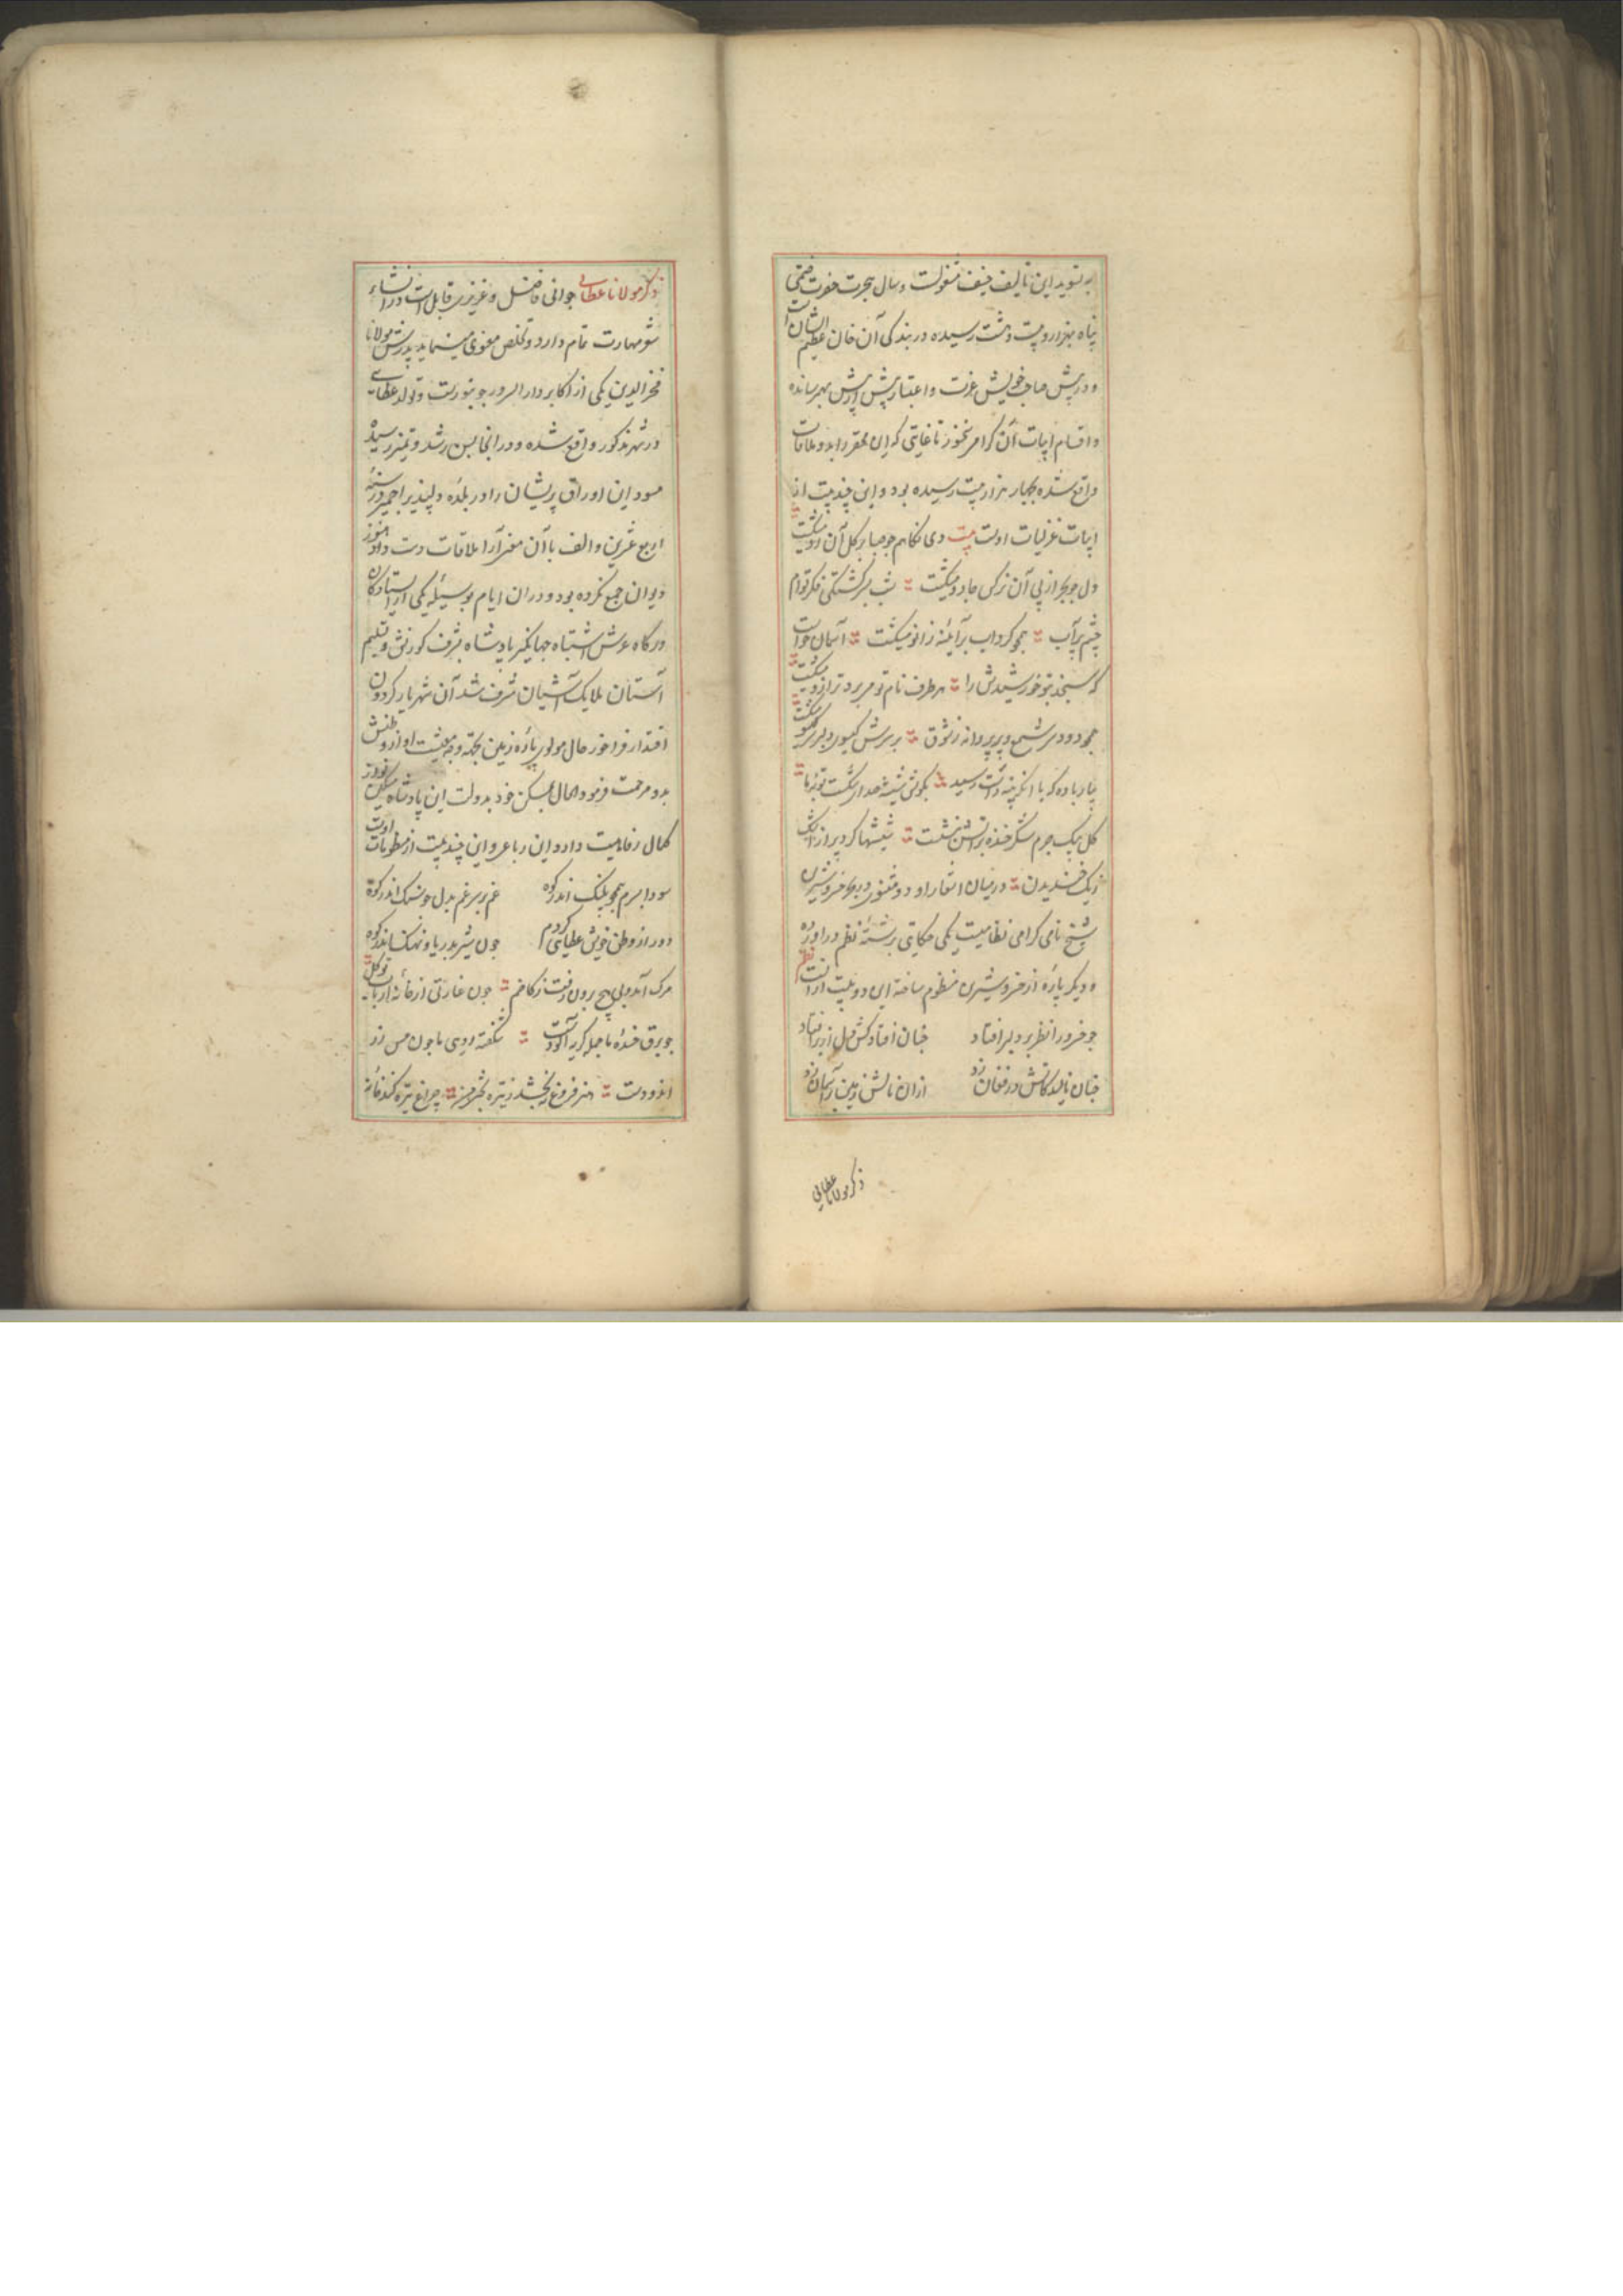 به تسوید این تالیف خفیف مشغولست و سال هجرت حضرت ختمی
پناه بهزار و بیست و هشت رسیده در بندگی آن خان عظیم الشان است
و در پیش صاحب خویش عزت و اعتبار بیش از بیش بهم رسانده
و اقسام ابیات آن گرامی سخنور تا غایتی که این محقر را بدو ملاقات
واقع شده بچهار هزار بیت رسیده بود و این چند بیت از
ابیات غزلیات اوست بیت دی نگاهم چو صبا بر گل آن رو میگشت
دل چو بحر از پی آن نرگس جادو میگشت شب بسرگشتگی فکر تو ام
چشم پرآب همچو گرداب بر آئینه زانو میگشت آسمان خواست
که سنجد بتو خورشیدش را هر طرف نام تو میبرد و ترازو میگشت
همچو دود سر شمع و پر پروانه ز شوق بر سرش گیسو و دل بر سر گیسو میگشت
بیار باده که با انکه پنبه در است رسید بگوش شیشه صدای شکست توبه ما
گل بیک جرم شکرخنده بر آتش بنشست شیشها کرد پر از اشک
زیک خندیدن در میان اشعار او دو مثنوی در بحر خسرو شیرین
شیخ نامی گرامی نظامیست یکی حکایتی برشته نظم در آورده
و دیگر پاره از خسرو شیرین منظوم ساخته این دو بیت از آنست نظم
چو خسرو را نظر بر دلبر افتاد چنان افتاد کش دل از بر افتاد
چنان نالید کاتش در فغان زد از ان نالش زمین بر آسمان زد
ذکر مولانا عطایی
ذکر مولانا عطایی جوانی فاضل و عزیزی قابل است در انشاء
شعر مهارت تمام دارد و تخلص معنوی مینماید پدرش مولانا
فخر الدین یکی از اکابر دار السرور جونپورست و تولد عطایی
در شهر مذکور واقع شده و در انجا بسن رشد و تمیز رسیده
مسود این اوراق پریشان را در بلده دلپذیر اجمیر در سنه
اربع عشرین و الف با آن معنی آرا ملاقات دست داد هنوز
دیوان جمع نکرده بود و در ان ایام بوسیله یکی از ایستادگان
درگاه عرش اشتباه جهانگیر پادشاه بشرف کورنش و تسلیم
آستان ملایک آشیان مشرف شد آن شهریار گردون
اقتدار فراخور حال مولوی پاره زمین بجهة وجه معیشت او از وطنش
بدو مرحمت فرمود الحال بمسکن خود بدولت این پادشاه مسکین نواز
کمال رفاهیت دارد این رباعی و این چند بیت از منظومات اوست
سودا بسرم همچو پلنگ اندر کوه غم بر سر غم بدل چو سنگ اندر کوه
دور از وطن خویش عطایی گردم چون شیر بدریا و نهنگ اندر کوه
مرگ آمد و بی هیچ برون رفت ز کاخم چون غارتی از خانه ارباب توکل
چو برق خنده ما جمله گریه آلودست شگفته روی ما چون مس زر
اندودست هنر فروغ نبخشد ز تیره بختی من چراغ تیره کند خانه